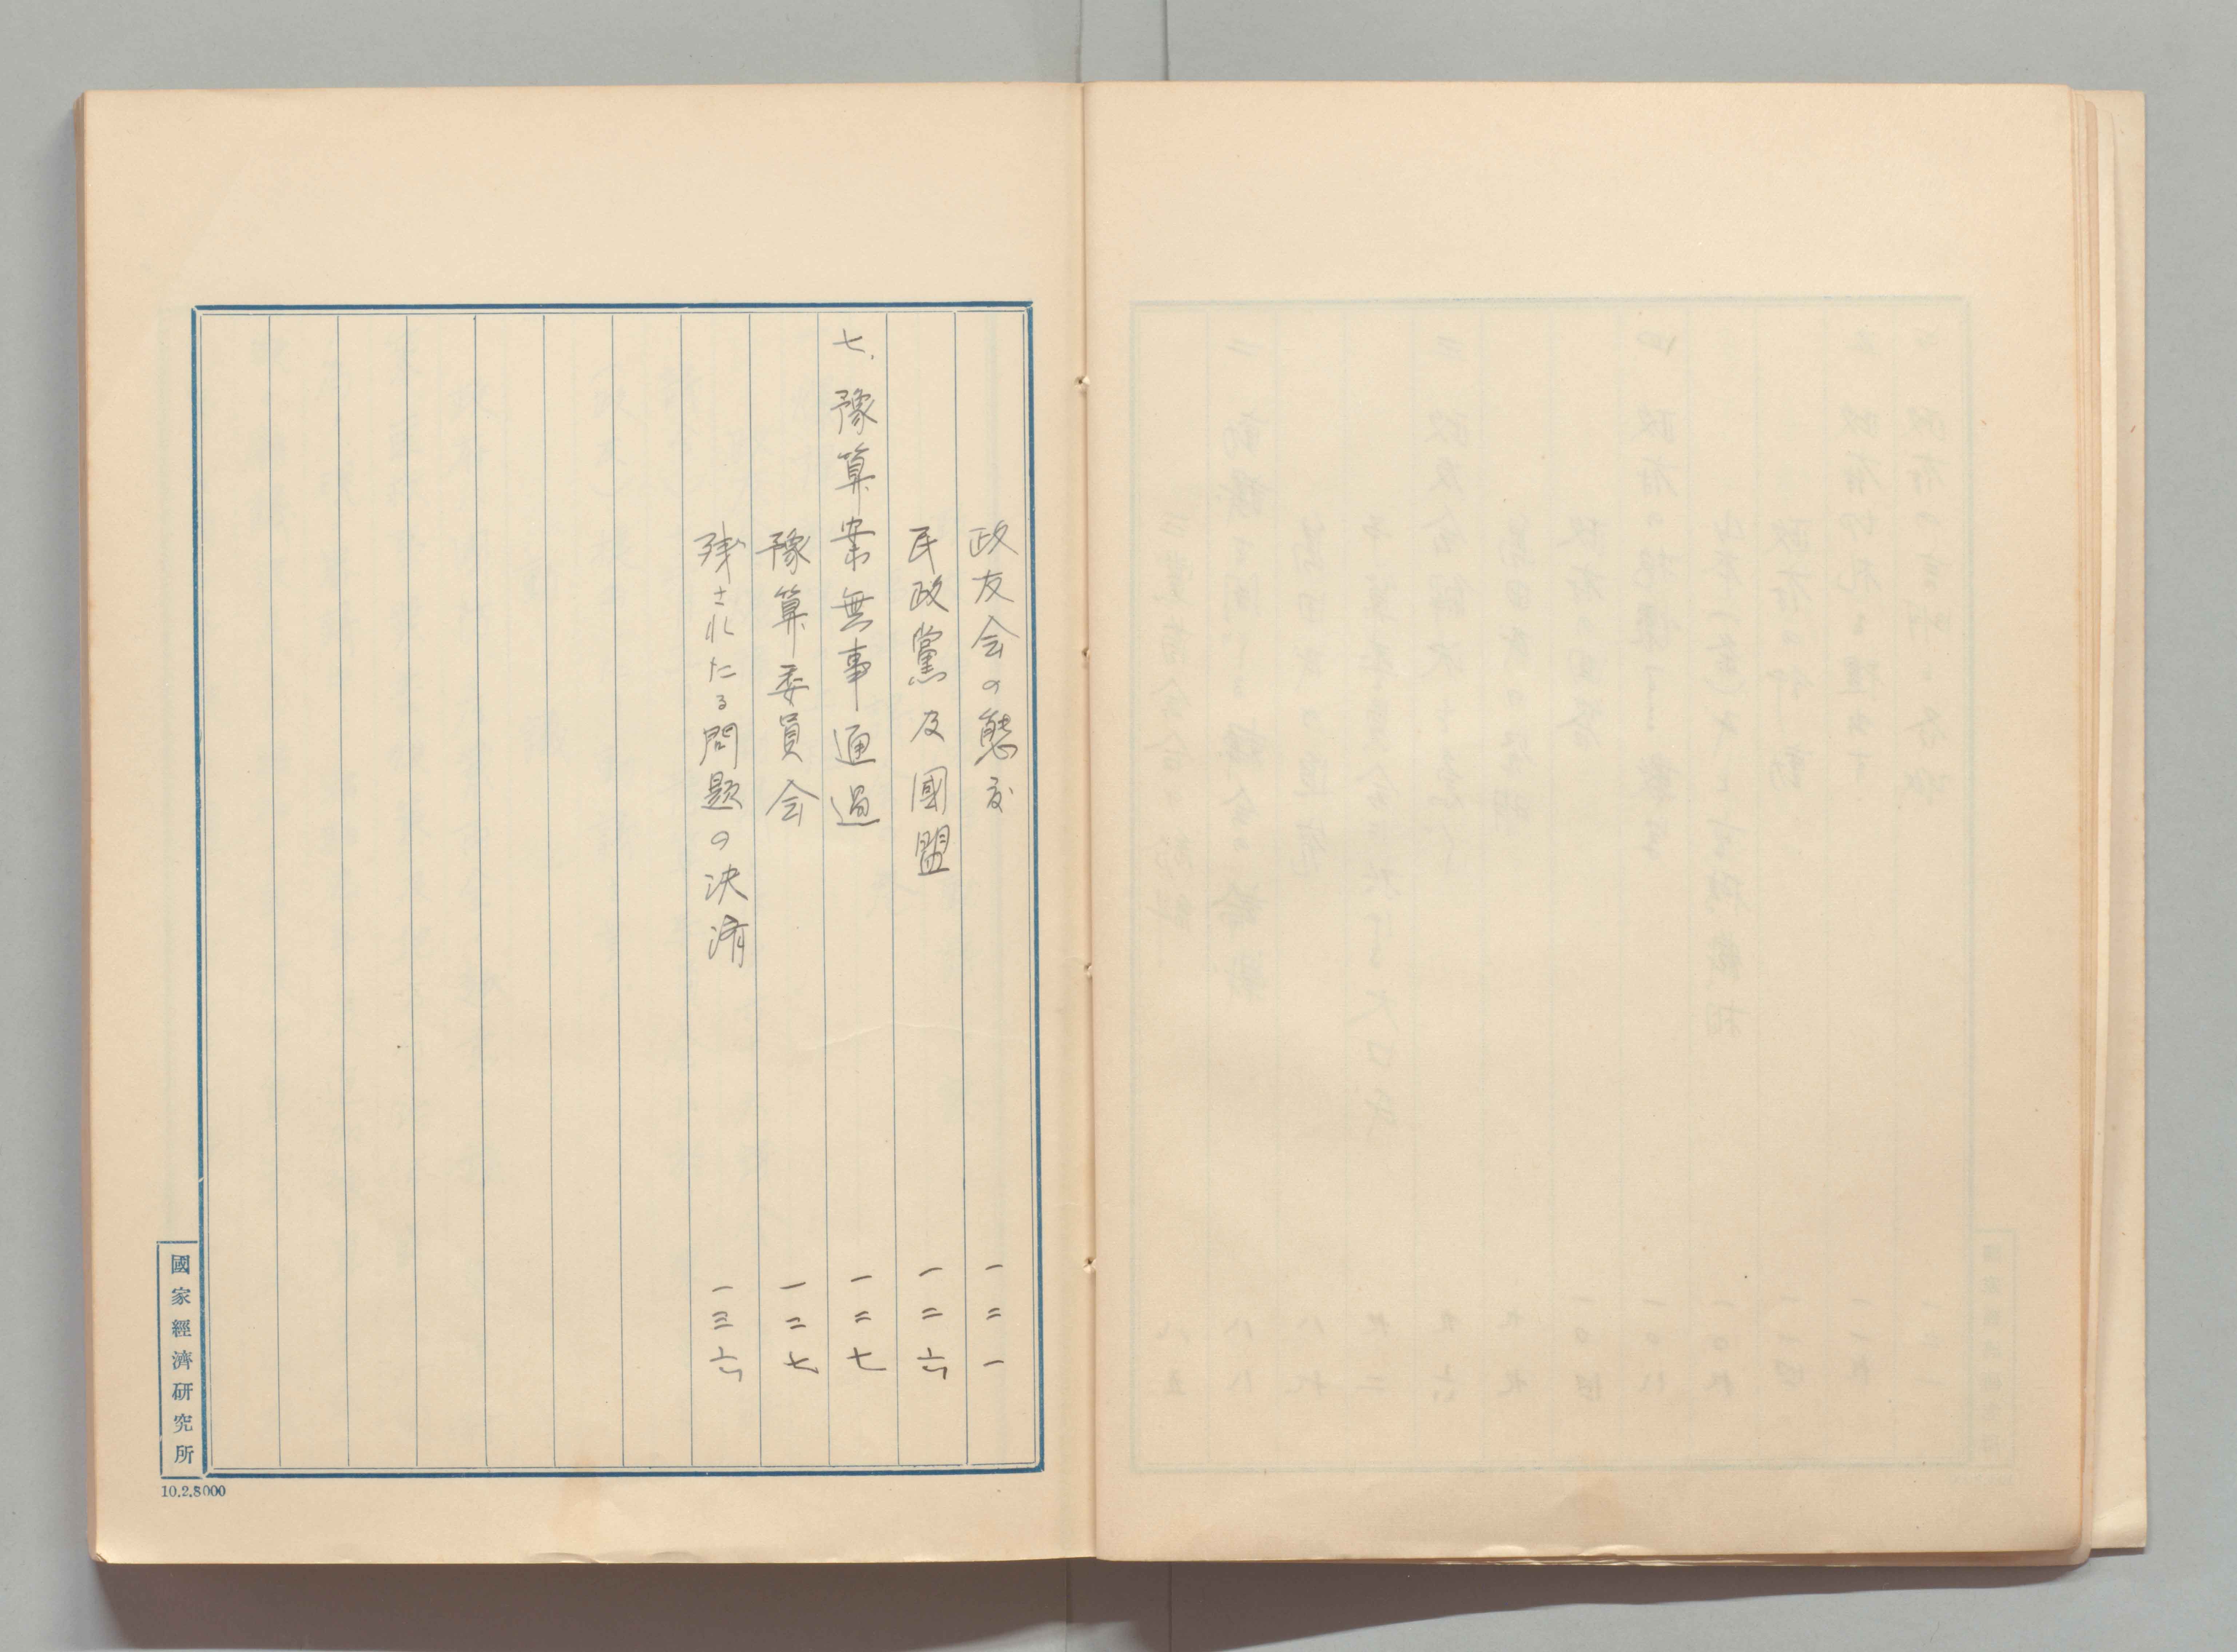 政友会の態度 一二一
民政黨及國盟 一二六
七、豫算案無事通過 一二七
豫算委員会 一二七
残されたる問題の決済 一三六
國家經濟研究所
10.2.8000